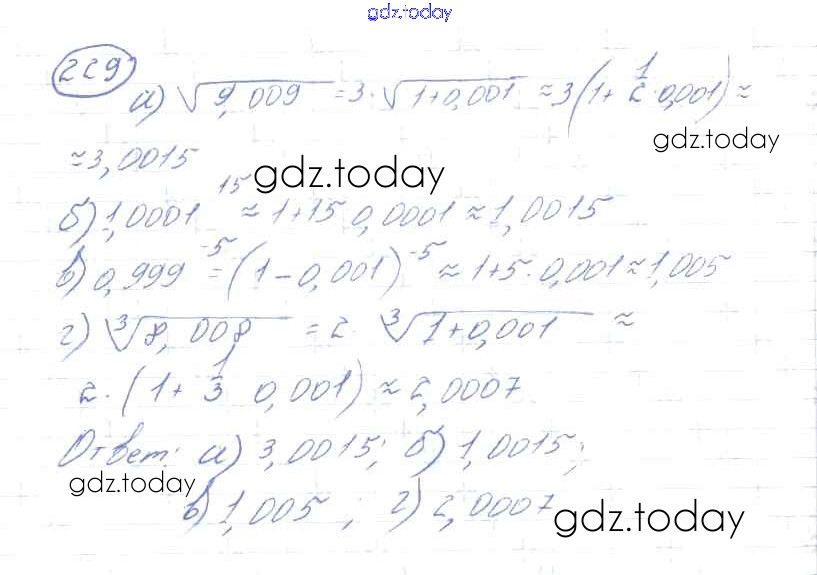 gdz.today
229
а) √9,009 = 3·√1+0,001 ≈ 3(1+ 1/2·0,001) ≈
gdz.today
≈ 3,0015
gdz.today
б) 1,0001^15 ≈ 1+15 0,0001 ≈ 1,0015
в) 0,999^-5 = (1-0,001)^-5 ≈ 1+5·0,001 ≈ 1,005
г) ∛8,008 = 2· ∛1+0,001 ≈
2·(1+ 1/3 0,001) ≈ 2,0007
Ответ: а) 3,0015; б) 1,0015;
gdz.today
в) 1,005 ; г) 2,0007
gdz.today